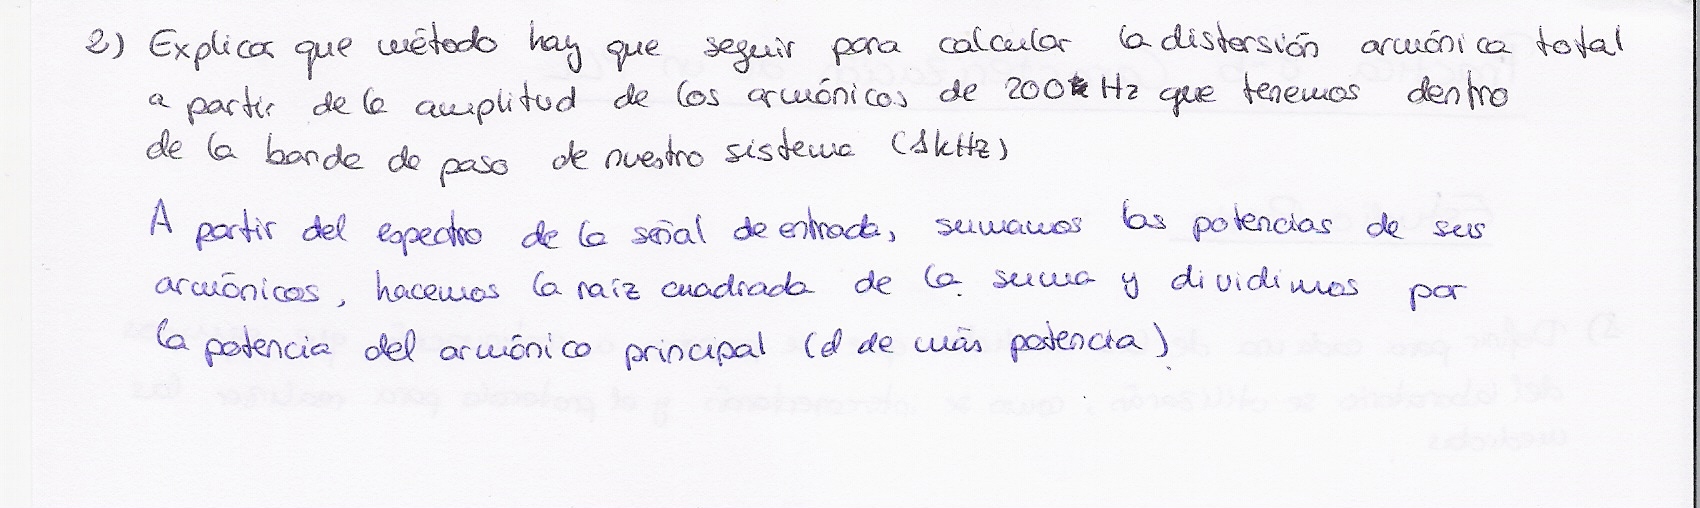 2) Explicar que método hay que seguir para calcular la distorsión armónica total
a partir de la amplitud de los armónicos de 200 Hz que tenemos dentro
de la banda de paso de nuestro sistema (1kHz)
A partir del espectro de la señal de entrada, sumamos las potencias de sus
armónicos, hacemos la raíz cuadrada de la suma y dividimos por
la potencia del armónico principal (el de más potencia).